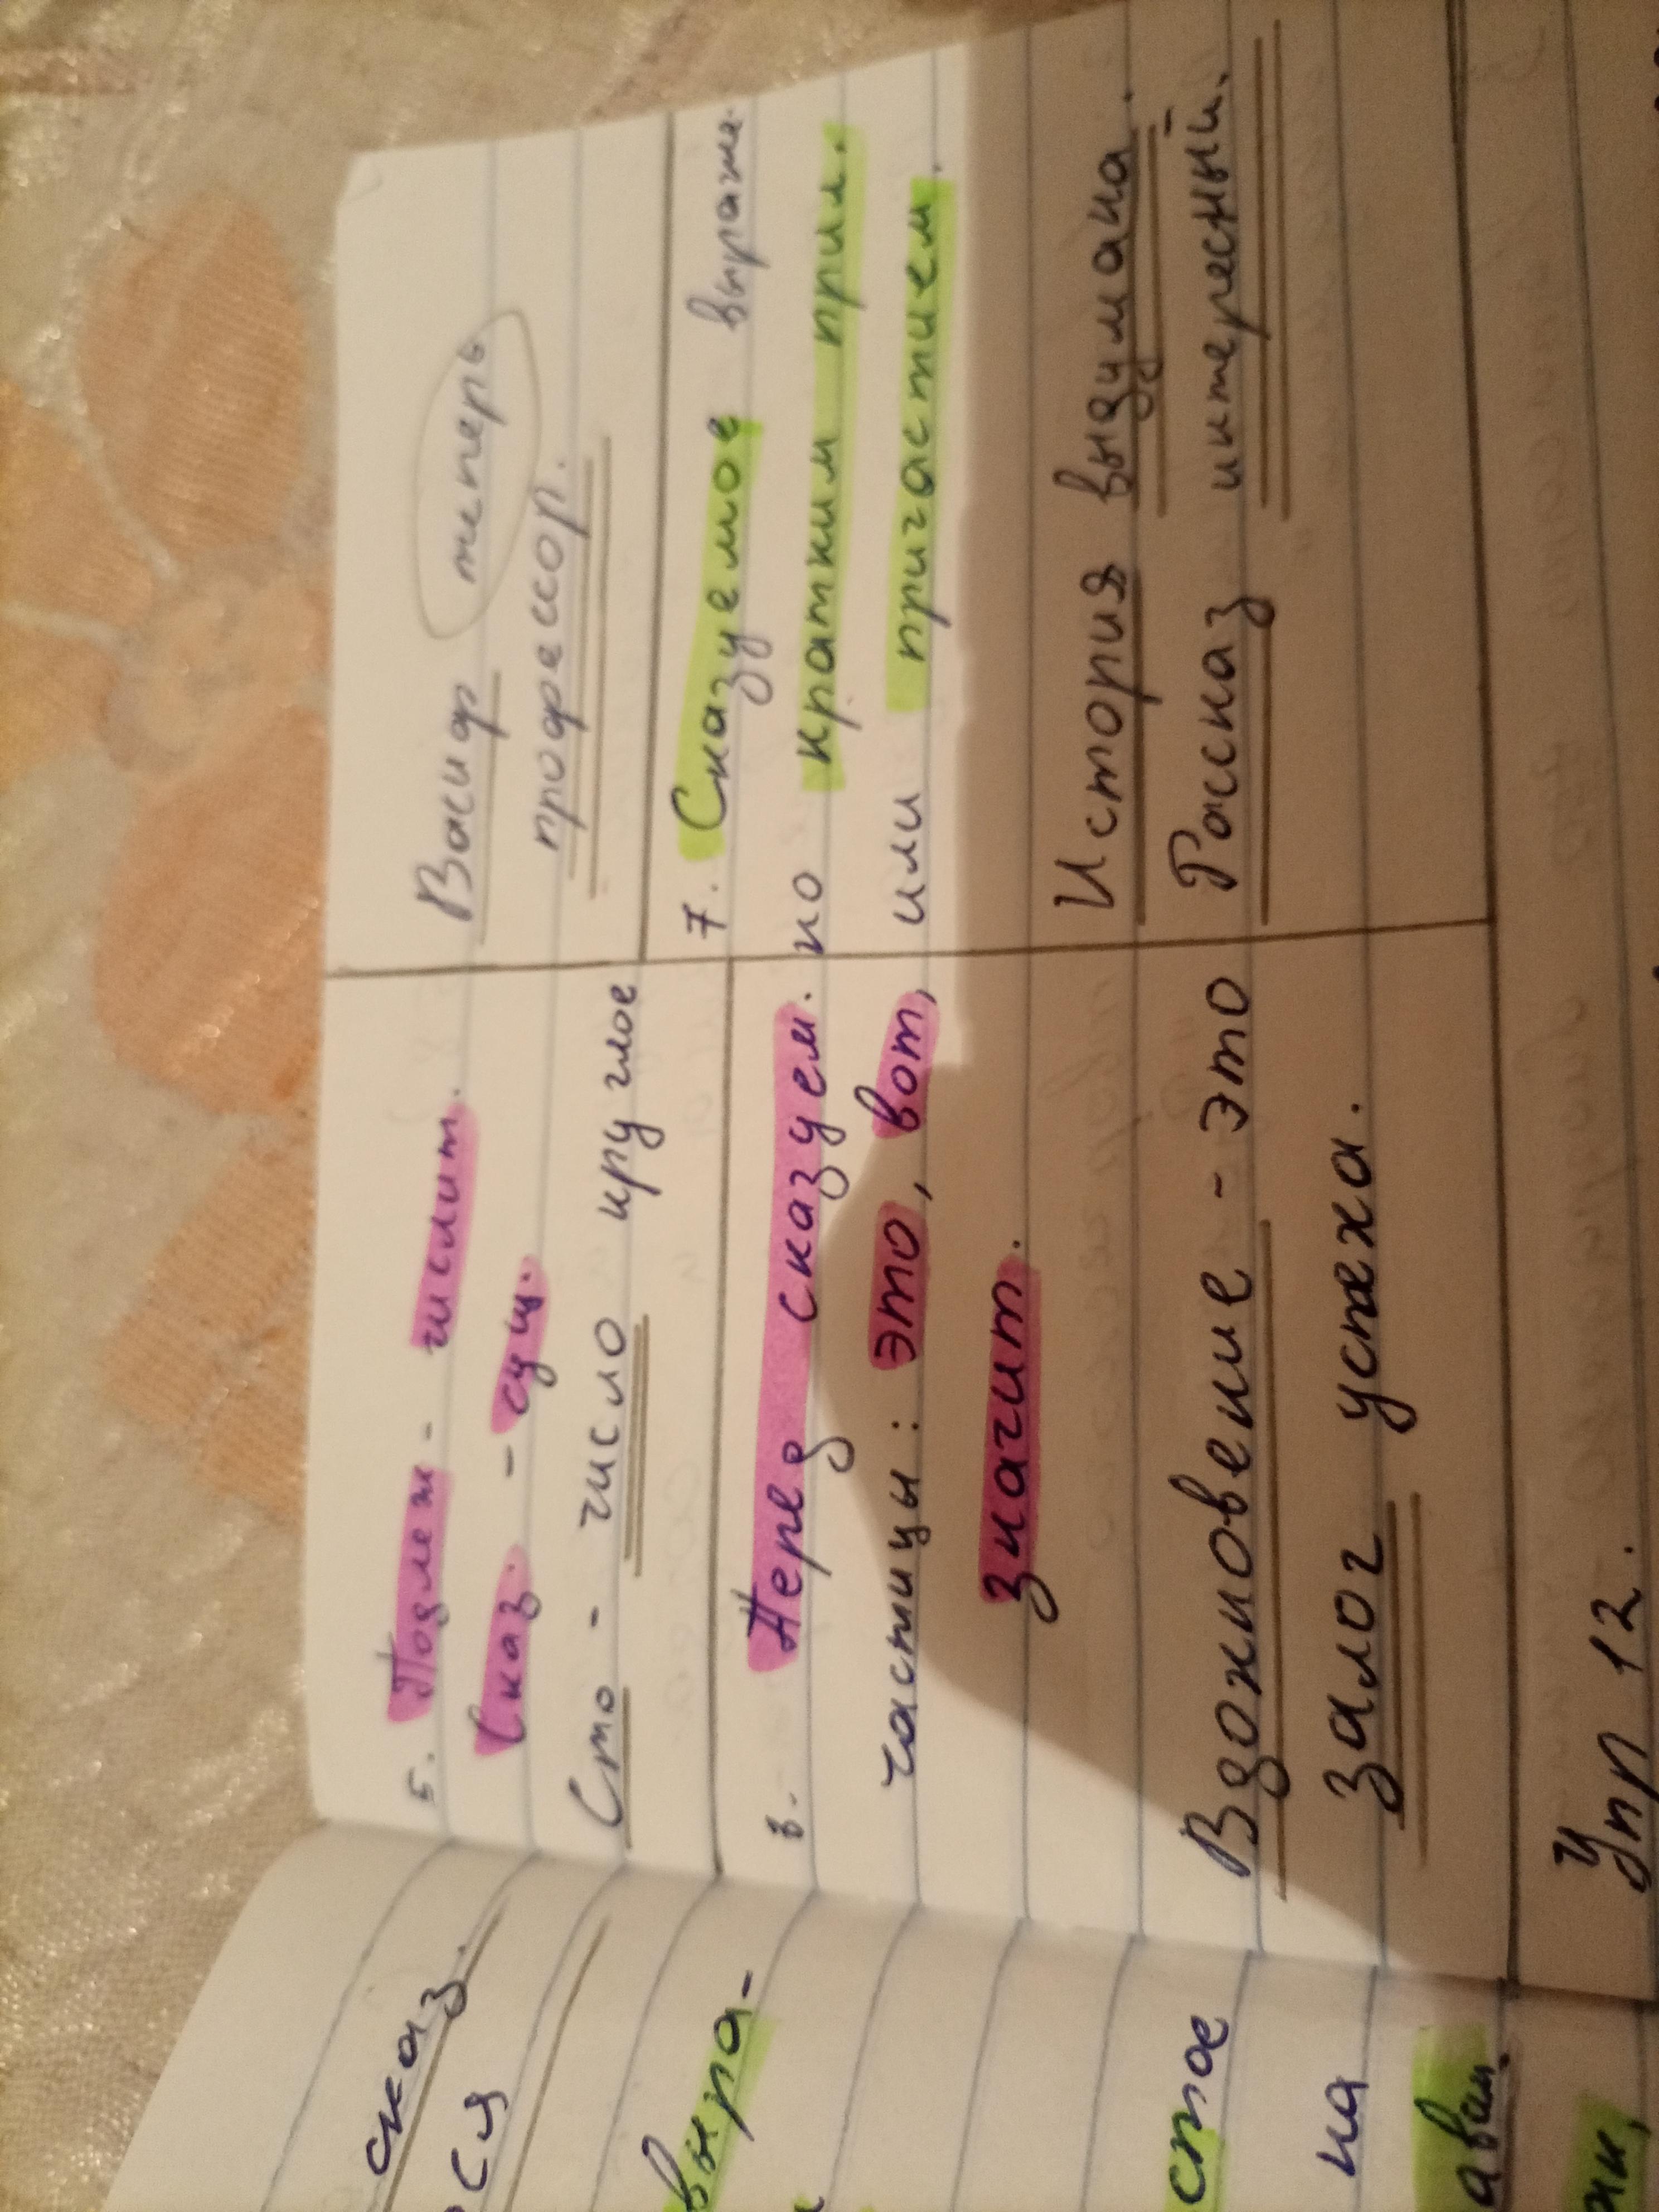 сказ.
ся
выра-
стое
на
5. Подлеж - числит.
Сказ. - сущ.
Сто - число круглое
8. Перед сказуем.
частицы: это, вот,
значит.
Вдохновение - это
залог успеха.
Упр 12.
Васир теперь
профессор.
7. Сказуемое выраже-
но кратким прил.
или причастием.
История выдумана.
Рассказ интересный.